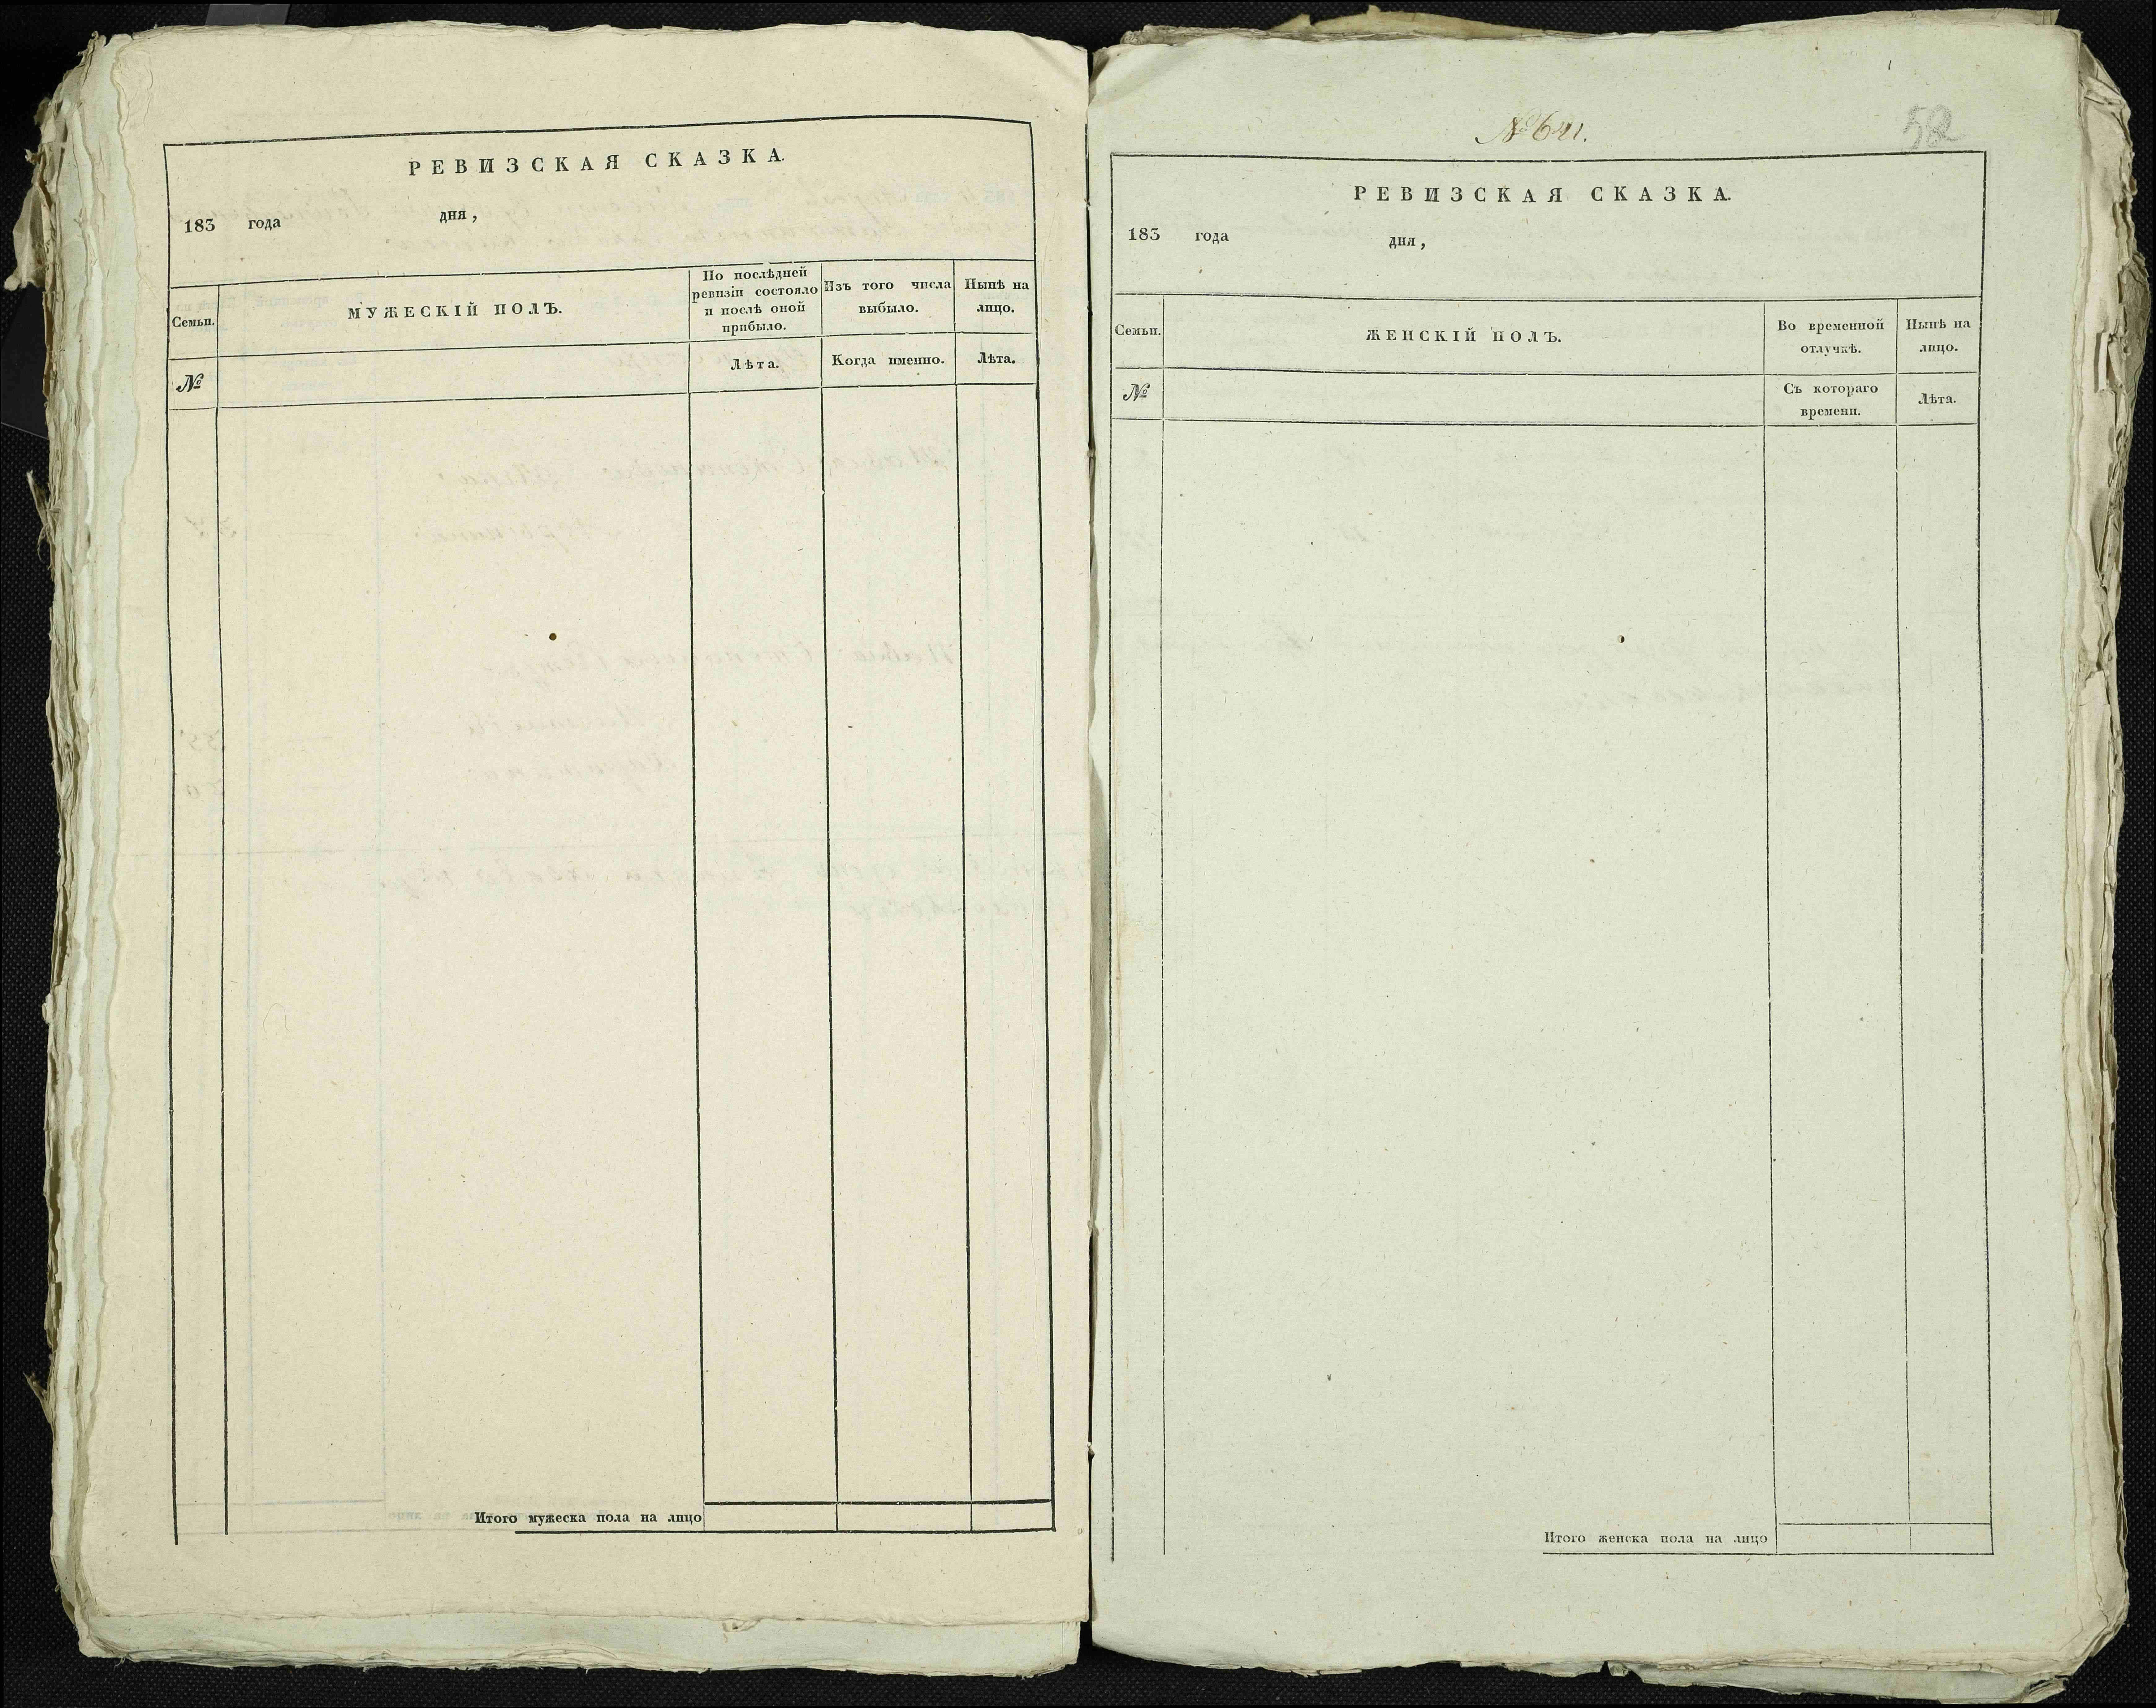 РЕВИЗСКАЯ СКАЗКА.
183 года дня,
Семьи.
МУЖЕСКІЙ ПОЛЪ.
По послѣдней
ревизіи состояло
и послѣ оной
прибыло.
Изъ того числа
выбыло.
Нынѣ на
лицо.
№
Лѣта.
Когда именно.
Лѣта.
Итого мужеска пола на лицо
№ 641.
58
РЕВИЗСКАЯ СКАЗКА.
183 года дня,
Семьи.
ЖЕНСКІЙ ПОЛЪ.
Во временной
отлучкѣ.
Нынѣ на
лицо.
№
Съ котораго
времени.
Лѣта.
Итого женска пола на лицо